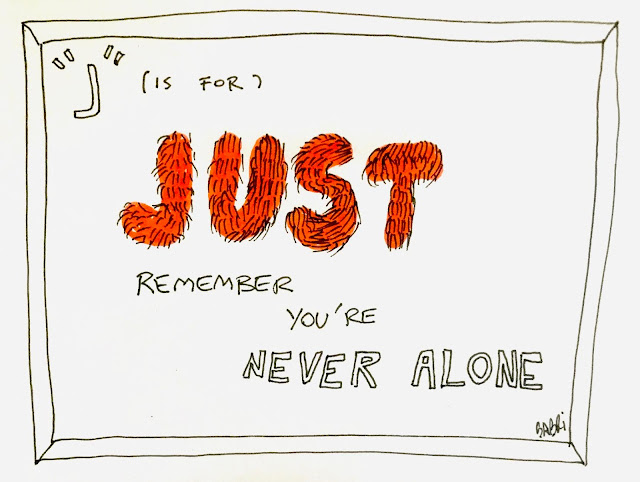 "J" (IS FOR)
JUST
REMEMBER
YOU'RE
NEVER ALONE